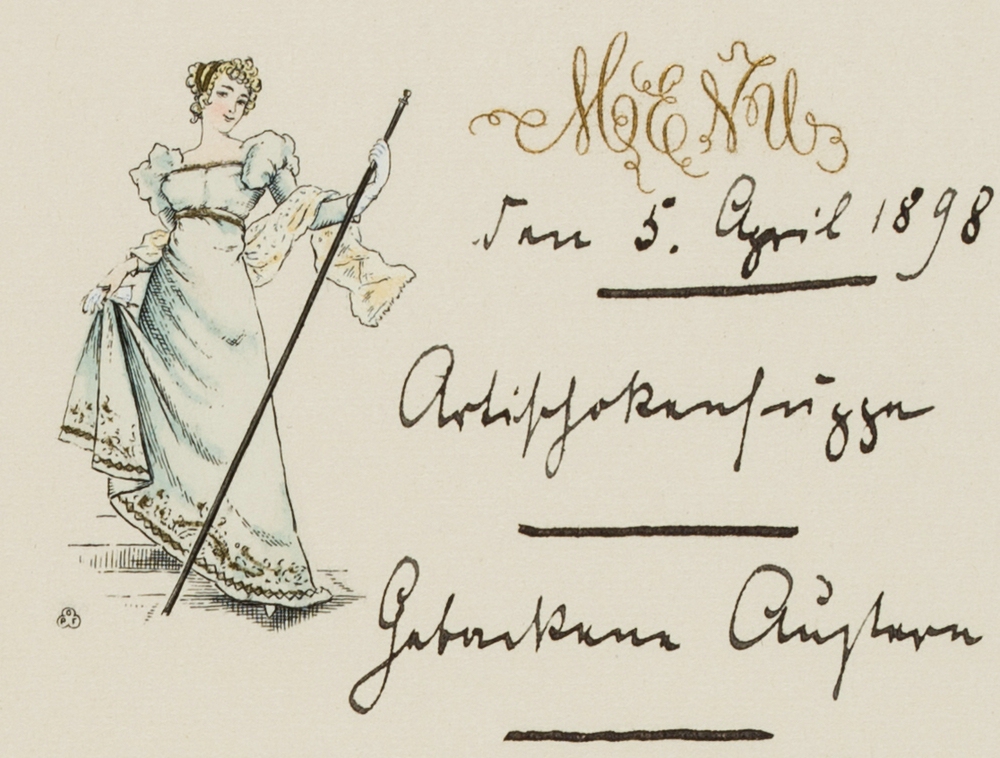 MENU
den 5. April 1898
Artischokensuppe
Gebackene Austern